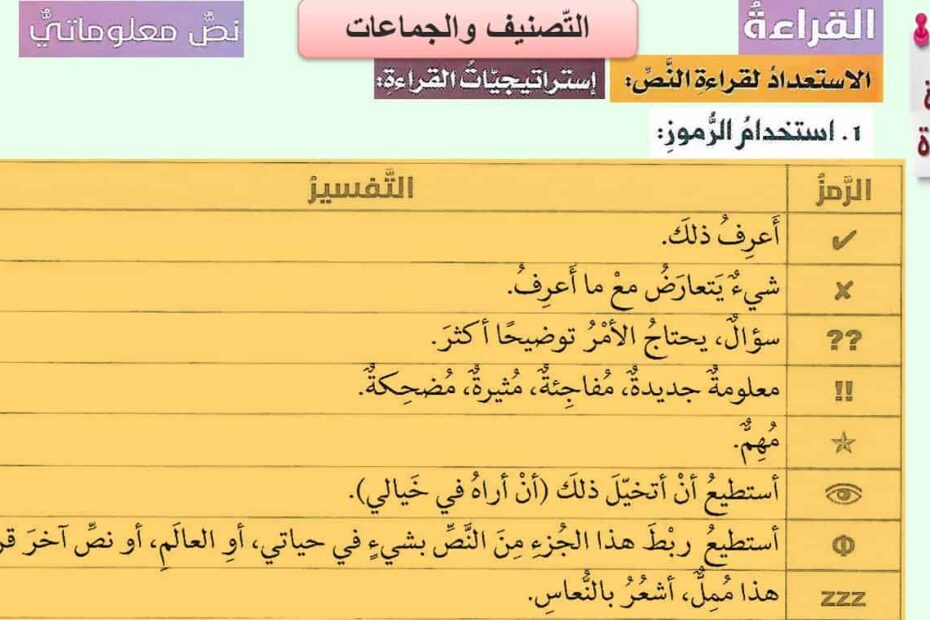 القراءةُ
التّصنيف والجماعات
نصٌّ معلوماتيٌّ
الاستعدادُ لقراءةِ النَّصِّ:
إستراتيجيّاتُ القراءةِ:
1. استخدامُ الرُّموزِ:
الرَّمزُ التَّفسيرُ
✔ أَعرِفُ ذلكَ.
✘ شيءٌ يَتعارَضُ معْ ما أَعرِفُ.
?? سؤالٌ، يحتاجُ الأمْرُ توضيحًا أكثرَ.
!! معلومةٌ جديدةٌ، مُفاجِئةٌ، مُثيرةٌ، مُضحِكةٌ.
☆ مُهِمٌّ.
👁 أستطيعُ أنْ أتخيّلَ ذلكَ (أنْ أراهُ في خَيالي).
Φ أستطيعُ ربْطَ هذا الجُزءِ مِنَ النَّصِّ بشيءٍ في حياتي، أوِ العالَمِ، أو نصٍّ آخرَ
zzz هذا مُمِلٌّ، أشعُرُ بالنُّعاسِ.